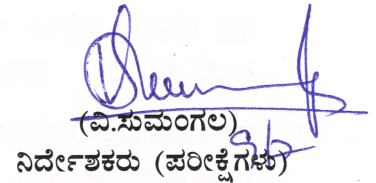 (ವಿ.ಸುಮಂಗಲ)
ನಿರ್ದೇಶಕರು (ಪರೀಕ್ಷೆಗಳು)